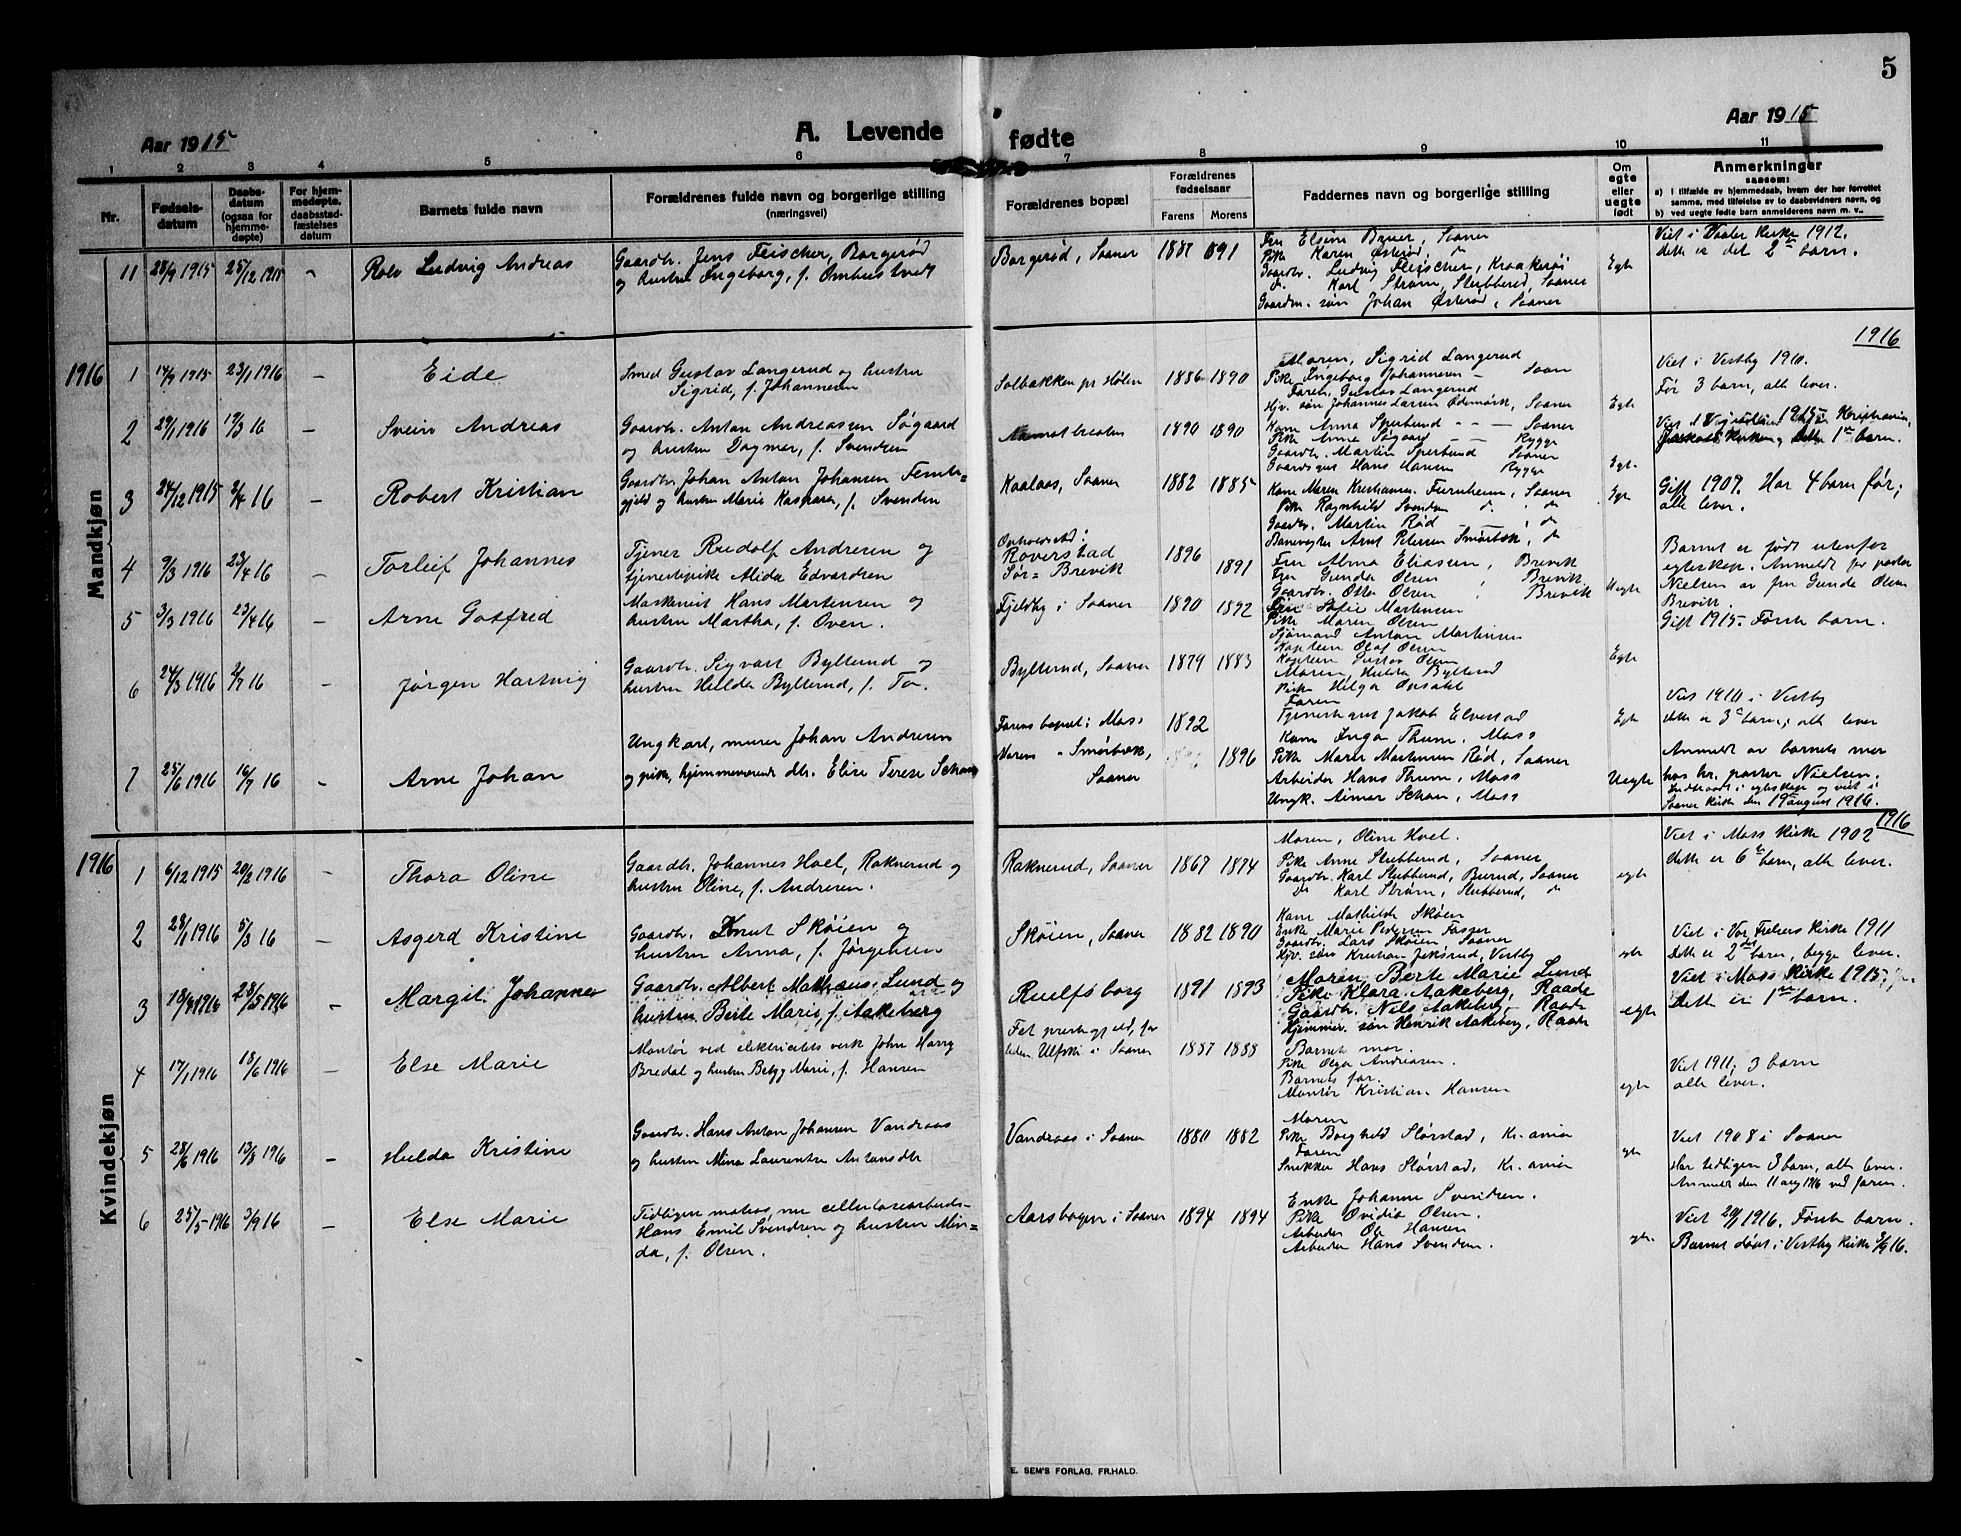 5
Aar 1915
A. Levende fødte
Aar 1915
1 2 3 4 5 6 7 8 9 10 11
Nr.
Fødsels-
datum
Daabs-
datum
(ogsaa for
hjemme-
døpte)
For hjem-
medøpte,
daabsstad-
fæstelses
datum
Barnets fulde navn
Forældrenes fulde navn og borgerlige stilling
(næringsvei)
Forældrenes bopæl
Forældrenes
fødselsaar
Farens Morens
Faddernes navn og borgerlige stilling
Om
egte
eller
uegte
født
Anmerkninger
saasom:
a) i tilfælde av hjemmedaab, hvem der har forrettet
samme, med tilføielse av to daabsvidners navn, og
b) ved uegte fødte barn anmelderens navn m. v..
Mandkjøn
11 28/9 1915 25/12 1915 - Rolv Ludvig Andreas
Gaardbr. Jens Feischer, Borgerød
og hustru Ingeborg, f. Omhustvedt
Borgerød, Saaner 1881 891
Fru Elsine Bruer, Saaner
Pike Karen Østerød, do
Gaardbr. Ludvig Feischer, Kraakerøi
do. Karl Strøm, Stubberud, Saaner
Gaardm. søn Johan Østerød, Saaner
Egte
Viet i Vaaler kirke 1912.
dette er det 2det barn.
1916
1916
1 14/9 1915 23/1 1916 - Eide
Smed Gustav Langerud og hustru
Sigrid, f. Johannesen
Solbakken pr Hølen 1886 1890
Moren, Sigrid Langerud
Pike Ingeborg Johannesen - Saan
Faren, Gustav Langerud
Hjv. søn Johannes Larsen Ødemørk, Saaner
Egte
Viet i Vestby 1910.
Før 3 barn, alle lever.
2 29/1 1916 19/3 16 - Svein Andreas
Gaardbr. Anton Andreassen Søgaard
og hustru Dagmar, f. Svendsen
1890 1890
Kone Anna Sperbund - - - Saaner
Pike Anna Søgaard - - Rygge
Gaardbr. Martin Sperbund Saaner
Gaardsgut Hans Hansen Rygge
Egte.
1915 Kristiania,
dette 1ste barn.
3 24/12 1915 2/4 16 - Robert Kristian
Gaardbr. Johan Anton Johansen Fembe-
gjeld og hustru Marie Kaspara, f. Svendsen
Kaalaas, Saaner 1882 1885
Kone Maren Kristiansen Furnheim, Saaner
Pike Ragnhild Svendsen do. , do
Gaardbr. Martin Rød - , do
Banevogter Arnt Petersen Smørbæk, do
Egte
Gift 1907. Har 4 barn før;
alle lever.
4 9/3 1916 23/4 16 - Torleif Johannes
Tjener Rudolf Andresen og
tjenestepike Alida Edvardsen
Opholdssted:
Røverstad
Sør= Brevik
1896 1891
Fru Alma Eliassen, Brevik
Fru Gunda Olsen , Brevik
Gaardbr. Otto Olsen , Brevik
Uegte
Barnet er født utenfor
egteskap. Anmeldt for pastor
Nielsen av fru Gunda Olsen
Brevik.
5 3/3 1916 23/4 16 - Arne Gotfred
Maskinist Hans Martensen og
hustru Martha, f. Oven.
Fjeldby i Saaner 1890 1892
Fru Sofie Martensen
Pike Maren Olsen
Sjømand Anton Martinsen
Kaptein Olaf Olsen
Kaptein Gustav Olsen
Egte
Gift 1915. Første barn.
6 24/3 1916 2/7 16 - Jørgen Hartvig
Gaardbr. Sigvart Bylterud og
hustru Hilda Bylterud, f. To.
Bylterud, Saaner 1879 1883
Moren Hulda Bylterud
Pike Helga Opsahl
Faren
Tjenestegut Jakob Elvestad
Egte
Viet 1910 i Vestby
dette er 3de barn; alle lever
7 25/6 1916 16/7 16 - Arne Johan
Ungkarl, murer Johan Andresen
og pike, hjemmeværende dtr. Elise Terese Schou
Farens bopæl: Moss
Moren " Smørbæk,
Saaner
1892 1896
Kone Inga Thum, Moss
Pike Marie Martinsen Rød, Saaner
Arbeider Hans Thum, Moss
Ungk. Aimar Schou, Moss
Uegte
Anmeldt av barnets mor
hos hr. pastor Nielsen.
Indtraadt i egteskap og viet i
Saaner kirke den 19de august 1916.
Kvindekjøn
1916
1916
1 6/12 1915 20/2 1916 - Thora Oline
Gaardbr. Johannes Hoel, Raknerud og
hustru Oline, f. Andresen.
Raknerud, Saaner 1867 1874
Moren, Oline Hoel.
Pike Anne Stubberud, Saaner
Gaardbr. Karl Stubberud, Burud, Saaner
Do Karl Strøm, Stubberud, do
egte
Viet i Moss kirke 1902
dette er 6te barn, alle lever.
2 28/1 1916 5/3 16 - Asgerd Kristine
Gaardbr. Knut Skøien og
hustru Anna, f. Jørgensen
Skøien, Saaner 1882 1890
Kone Mathilde Skøien
Enke Marie Pedersen Fasger
Gaardbr. Lars Skøien, Saaner
Hjv. søn Kristian Jeksrud, Vestby
egte
Viet i Vor Frelsers kirke 1911
Dette er 2det barn, begge lever.
3 18/4 1916 28/5 1916 Margit Johanne
Gaardbr. Albert Mathæus Lund og
hustru Berte Marie, f. Aakeberg
Ruelfsborg 1891 1893
Moren Berte Marie Lund
Pike Klara Aakeberg, Raade
Gaardbr. Nils Aakeberg, Raade
Hjemmev. søn Henrik Aakeberg, Raade
egte
Viet i Moss kirke 1915.
Dette er 1ste barn.
4 17/1 1916 18/6 1916 - Else Marie
Montør ved elektricitets verk John Harry
Bredal og hustru Betzy Marie, f. Hansen
Fet prestegjeld, for
tiden Ulfski i Saaner 1887 1888
Barnets mor.
Pike Olga Andreasen.
Barnets far.
Montør Kristian Hansen
egte
Viet 1911; 3 barn
alle lever.
5 28/6 1916 13/8 1916 - Hulda Kristine
Gaardbr. Hans Anton Johansen Vandraas
og hustru Mina Laurentze Antonsdtr
Vandraas i Saaner 1880 1882
Moren
Pike Borghild Størstad, Kr.ania
Faren
Snekker Hans Størstad, Kr.ania
egte
Viet 1908 i Saaner
Har tidligere 3 barn, alle lever.
Anmeldt den 11 aug 1916 ved faren.
6 25/5-1916 3/9 16 - Else Marie
Tidligere matros, nu cellulosearbeid-
Hans Emil Svendsen og hustru Min=
da, f. Olsen.
Aarsbogen i Saaner 1894 1894
Enke Johanne Svendsen.
Pike Ovidia Olsen.
Arbeider Ole Hansen
Arbeider Hans Svendsen.
egte.
Viet 1916. Første barn.
Barnet døbt i Vestby kirke 3/9 16.
E. SEM'S FORLAG, FR.HALD.